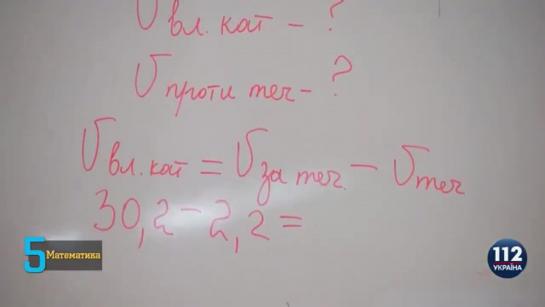 V вл. кат - ?
V проти теч - ?
V вл. кат = V за теч. - V теч
30,2 - 2,2 =
5 Математика
112 УКРАЇНА